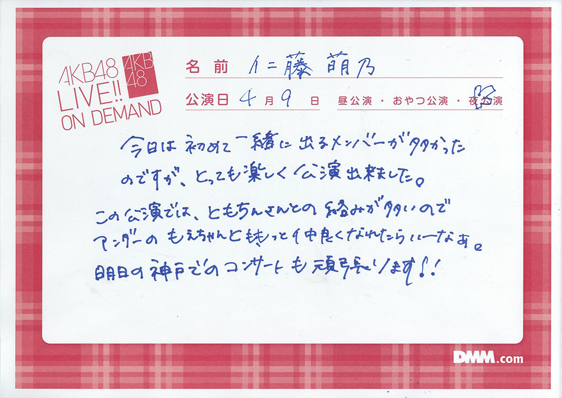 AKB48
LIVE!!
ON DEMAND
AKB
48
名前 仁藤萌乃
公演日 4月9日 昼公演・おやつ公演・夜公演
今日は初めて一緒に出るメンバーが多かった
のですが、とっても楽しく公演出来ました。
この公演では、ともちんさんとの絡みが多いので
アンダーのもえちゃんとももっと仲良くなれたらいーなぁ。
明日の神戸でのコンサートも頑張ります!!
DMM.com